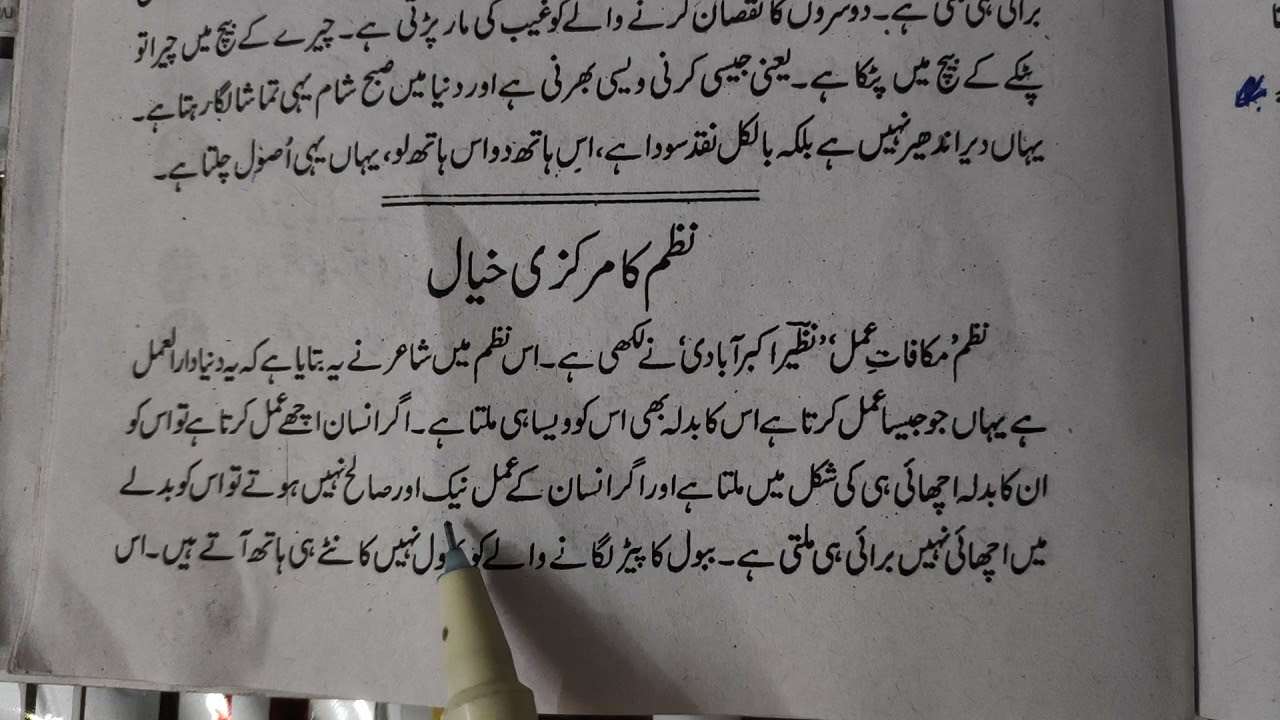 برائی ہی ملتی ہے۔ دوسروں کا نقصان کرنے والے کو غیب کی مار پڑتی ہے۔ چیرے کے بیچ میں چیرا تو
پٹکے کے بیچ میں پٹکا ہے۔ یعنی جیسی کرنی ویسی بھرنی ہے اور دنیا میں صبح شام یہی تماشا لگا رہتا ہے۔
یہاں دیر اندھیر نہیں ہے بلکہ بالکل نقد سودا ہے، اسِ ہاتھ دو اس ہاتھ لو، یہاں یہی اُصول چلتا ہے۔
نظم کا مرکزی خیال
نظم 'مکافاتِ عمل' 'نظیر اکبر آبادی' نے لکھی ہے۔ اس نظم میں شاعر نے یہ بتایا ہے کہ یہ دنیا دارالعمل
ہے یہاں جو جیسا عمل کرتا ہے اس کا بدلہ بھی اس کو ویسا ہی ملتا ہے۔ اگر انسان اچھے عمل کرتا ہے تو اس کو
ان کا بدلہ اچھائی ہی کی شکل میں ملتا ہے اور اگر انسان کے عمل نیک اور صالح نہیں ہوتے تو اس کو بدلے
میں اچھائی نہیں برائی ہی ملتی ہے۔ ببول کا پیڑ لگانے والے کو نہیں کانٹے ہی ہاتھ آتے ہیں۔ اس